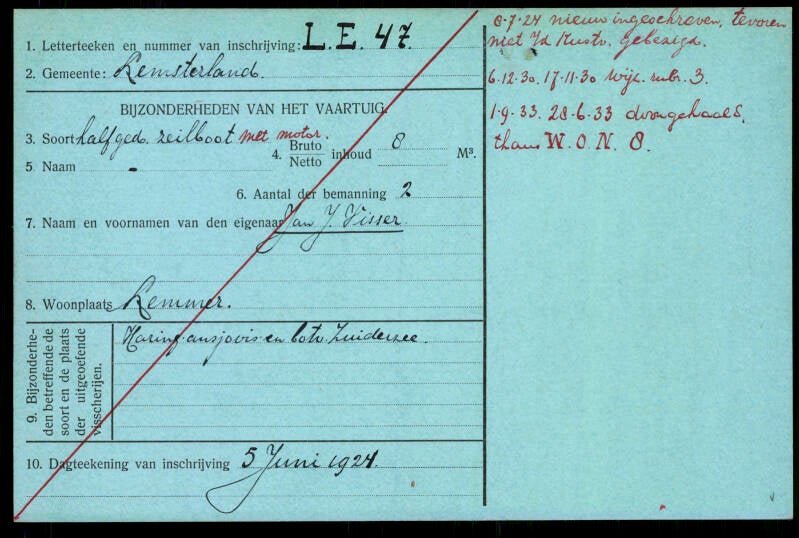 1. Letterteeken en nummer van inschrijving: L.E. 47.
2. Gemeente: Lemsterland.
BIJZONDERHEDEN VAN HET VAARTUIG.
3. Soort halfged. zeilboot met motor.
4. Bruto Netto inhoud 8 M³.
5 Naam -
6. Aantal der bemanning 2
7. Naam en voornamen van den eigenaar Jan J. Visser
8. Woonplaats Lemmer.
9. Bijzonderhe-
den betreffende de
soort en de plaats
der uitgeoefende
visscherijen.
Haring-ansjovis-en botv. Zuiderzee.
10. Dagteekening van inschrijving 5 Juni 1924.
8-7-24 nieuw ingeschreven, tevoren
niet Kustv. gebezigd.
6.12.30. 17.11.30 wijz. rubr. 3.
1-9-33. 28-6-33 doorgehaald,
thans W.O.N. 8.